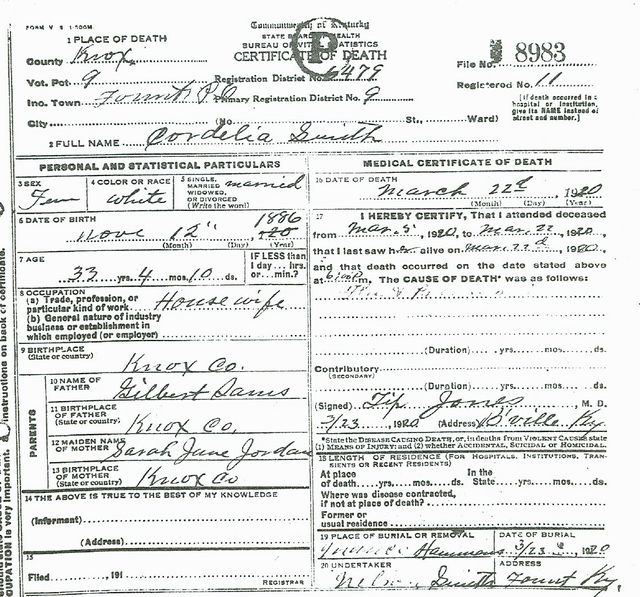 FORM V. S. 1-200M.
Commonwealth of Kentucky
STATE BOARD OF HEALTH
BUREAU OF VITAL STATISTICS
CERTIFICATE OF DEATH
P
1 PLACE OF DEATH
County Knox
Vot. Pct 9
Inc. Town Fount P.O.
City (No. St., Ward)
Registration District No. 6479
Primary Registration District No. 9
File No. 8983
Registered No. 11
(If death occurred in a hospital or institution, give its NAME instead of street and number.)
2 FULL NAME Cordelia Smith
PERSONAL AND STATISTICAL PARTICULARS
3 SEX Fem
4 COLOR OR RACE White
5 SINGLE, MARRIED WIDOWED, OR DIVORCED (Write the word) married
6 DATE OF BIRTH Nove 12" 1886
(Month) (Day) (Year)
7 AGE
33 yrs. 4 mos. 10 ds.
IF LESS than 1 day ... hrs. or ... min.?
8 OCCUPATION
(a) Trade, profession, or particular kind of work House wife
(b) General nature of industry business or establishment in which employed (or employer)
9 BIRTHPLACE
(State or country)
Knox Co.
PARENTS
10 NAME OF FATHER Gilbert Sams
11 BIRTHPLACE OF FATHER (State or country) Knox Co.
12 MAIDEN NAME OF MOTHER Sarah Jane Jordan
13 BIRTHPLACE OF MOTHER (State or country) Knox Co
14 THE ABOVE IS TRUE TO THE BEST OF MY KNOWLEDGE
(Informant)
(Address)
15
Filed , 191
REGISTRAR
MEDICAL CERTIFICATE OF DEATH
16 DATE OF DEATH
March 22d, 1920
(Month) (Day) (Year)
17 I HEREBY CERTIFY, That I attended deceased
from Mar. 5, 1920, to Mar. 22, 1920,
that I last saw her alive on Mar. 22d, 1920,
and that death occurred on the date stated above
at m. The CAUSE OF DEATH* was as follows:
(Duration) yrs. mos. ds.
Contributory
(SECONDARY)
(Duration) yrs. mos. ds.
(Signed) Tip Jones, M. D.
3/23, 1920 (Address) B'ville Ky
*State the DISEASE CAUSING DEATH, or, in deaths from VIOLENT CAUSES state (1) MEANS OF INJURY; and (2) whether ACCIDENTAL, SUICIDAL or HOMICIDAL
18 LENGTH OF RESIDENCE (FOR HOSPITALS, INSTITUTIONS, TRANSIENTS OR RECENT RESIDENTS)
At place of death yrs. mos. ds. In the State yrs. mos. ds.
Where was disease contracted, if not at place of death?
Former or usual residence
19 PLACE OF BURIAL OR REMOVAL Hammons
DATE OF BURIAL 3/23, 1920
20 UNDERTAKER Smith
ADDRESS Fount Ky.
instructions on back of certificate.
CUPATION is very important.